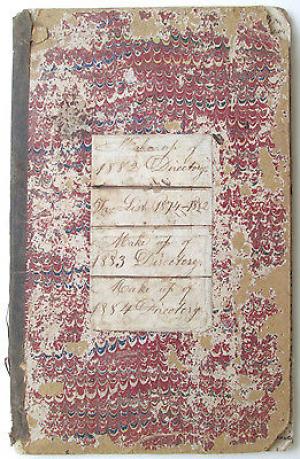 Make up of
1882 Directory.
Tax List 1874-1882
Make up of
1883 Directory.
Make up of
1884 Directory.